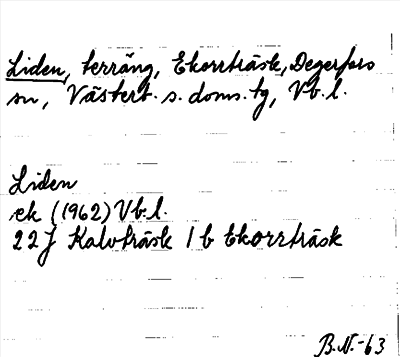 Liden, terräng, Ekorrträsk, Degerfors
sn, Västerb. s. doms. tg, Vb. l.
Liden
ek (1962) Vb. l.
22J Kalvträsk 1 b Ekorrträsk
B.N.-63